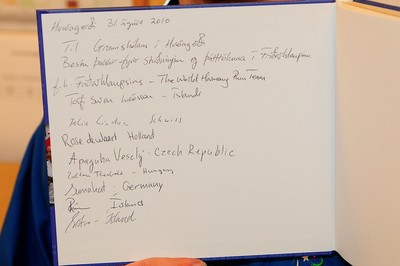 Hveragerði 31. ágúst 2010
Til Grunnskólans í Hveragerði
Bestu þakkir fyrir stuðninginn og þátttökuna í Friðarhlaupinu
f.h. Friðarhlaupsins - The World Harmony Run Team
Torfi - Ísland
Schweiz
Rose de Waart Holland
Apaguha Veselý - Czech Republic
Zoltan - Hungary
Sumahat - Germany
Ísland
- Island